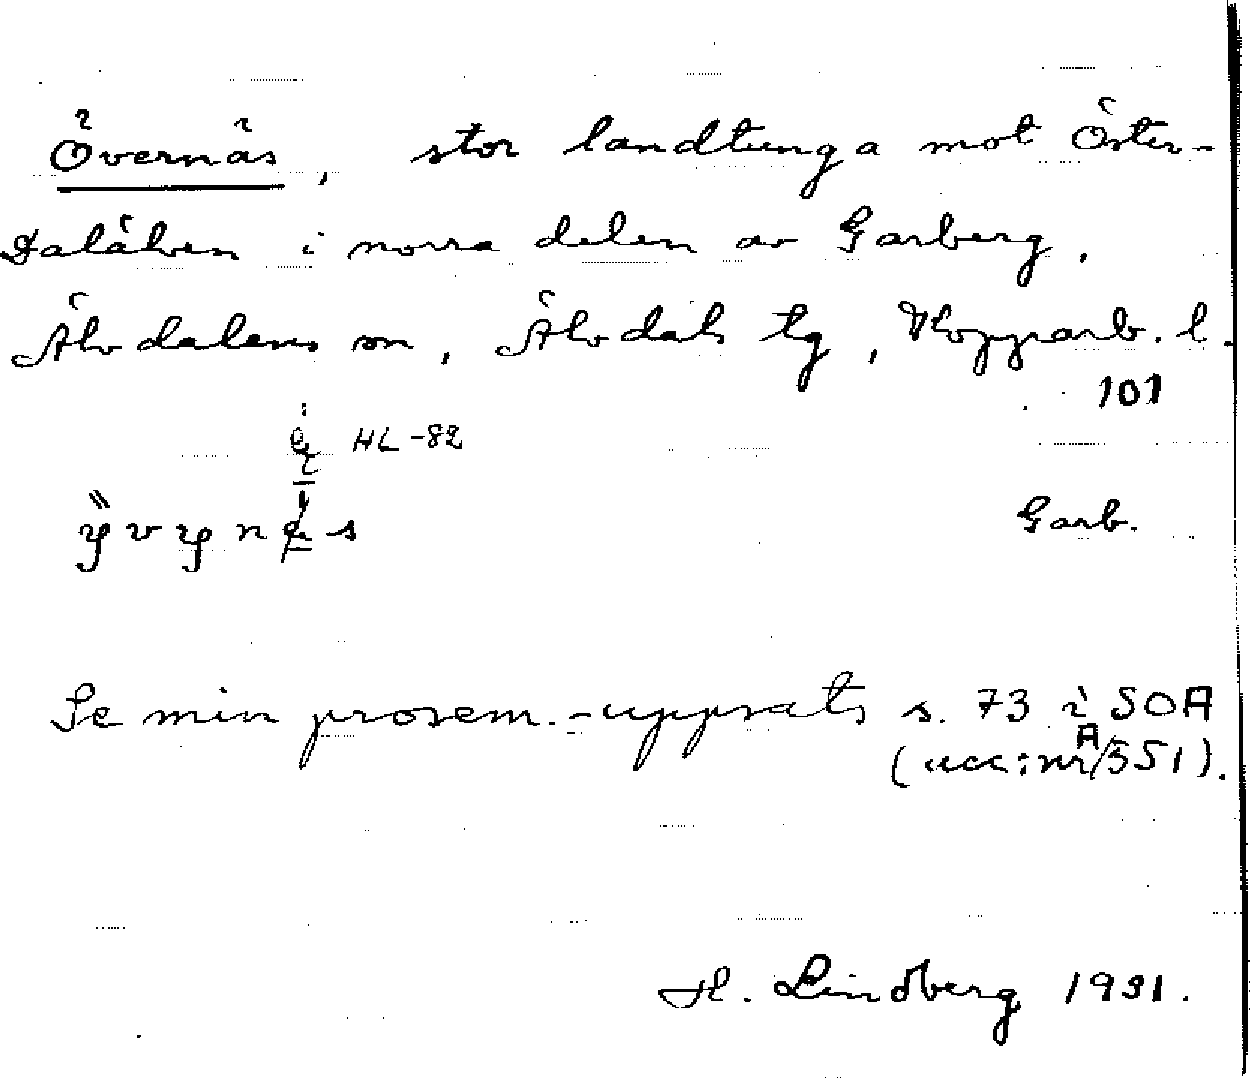 Övernäs, stor landtunga mot Öster-
Dalälven i norra delen av Garberg,
Älvdalens sn, Älvdals tg, Kopparb. l.
101
HL -82
Garb.
Se min prosem.-uppsats s. 73 i SOA
(acc:nr A/551).
H. Lindberg 1931.